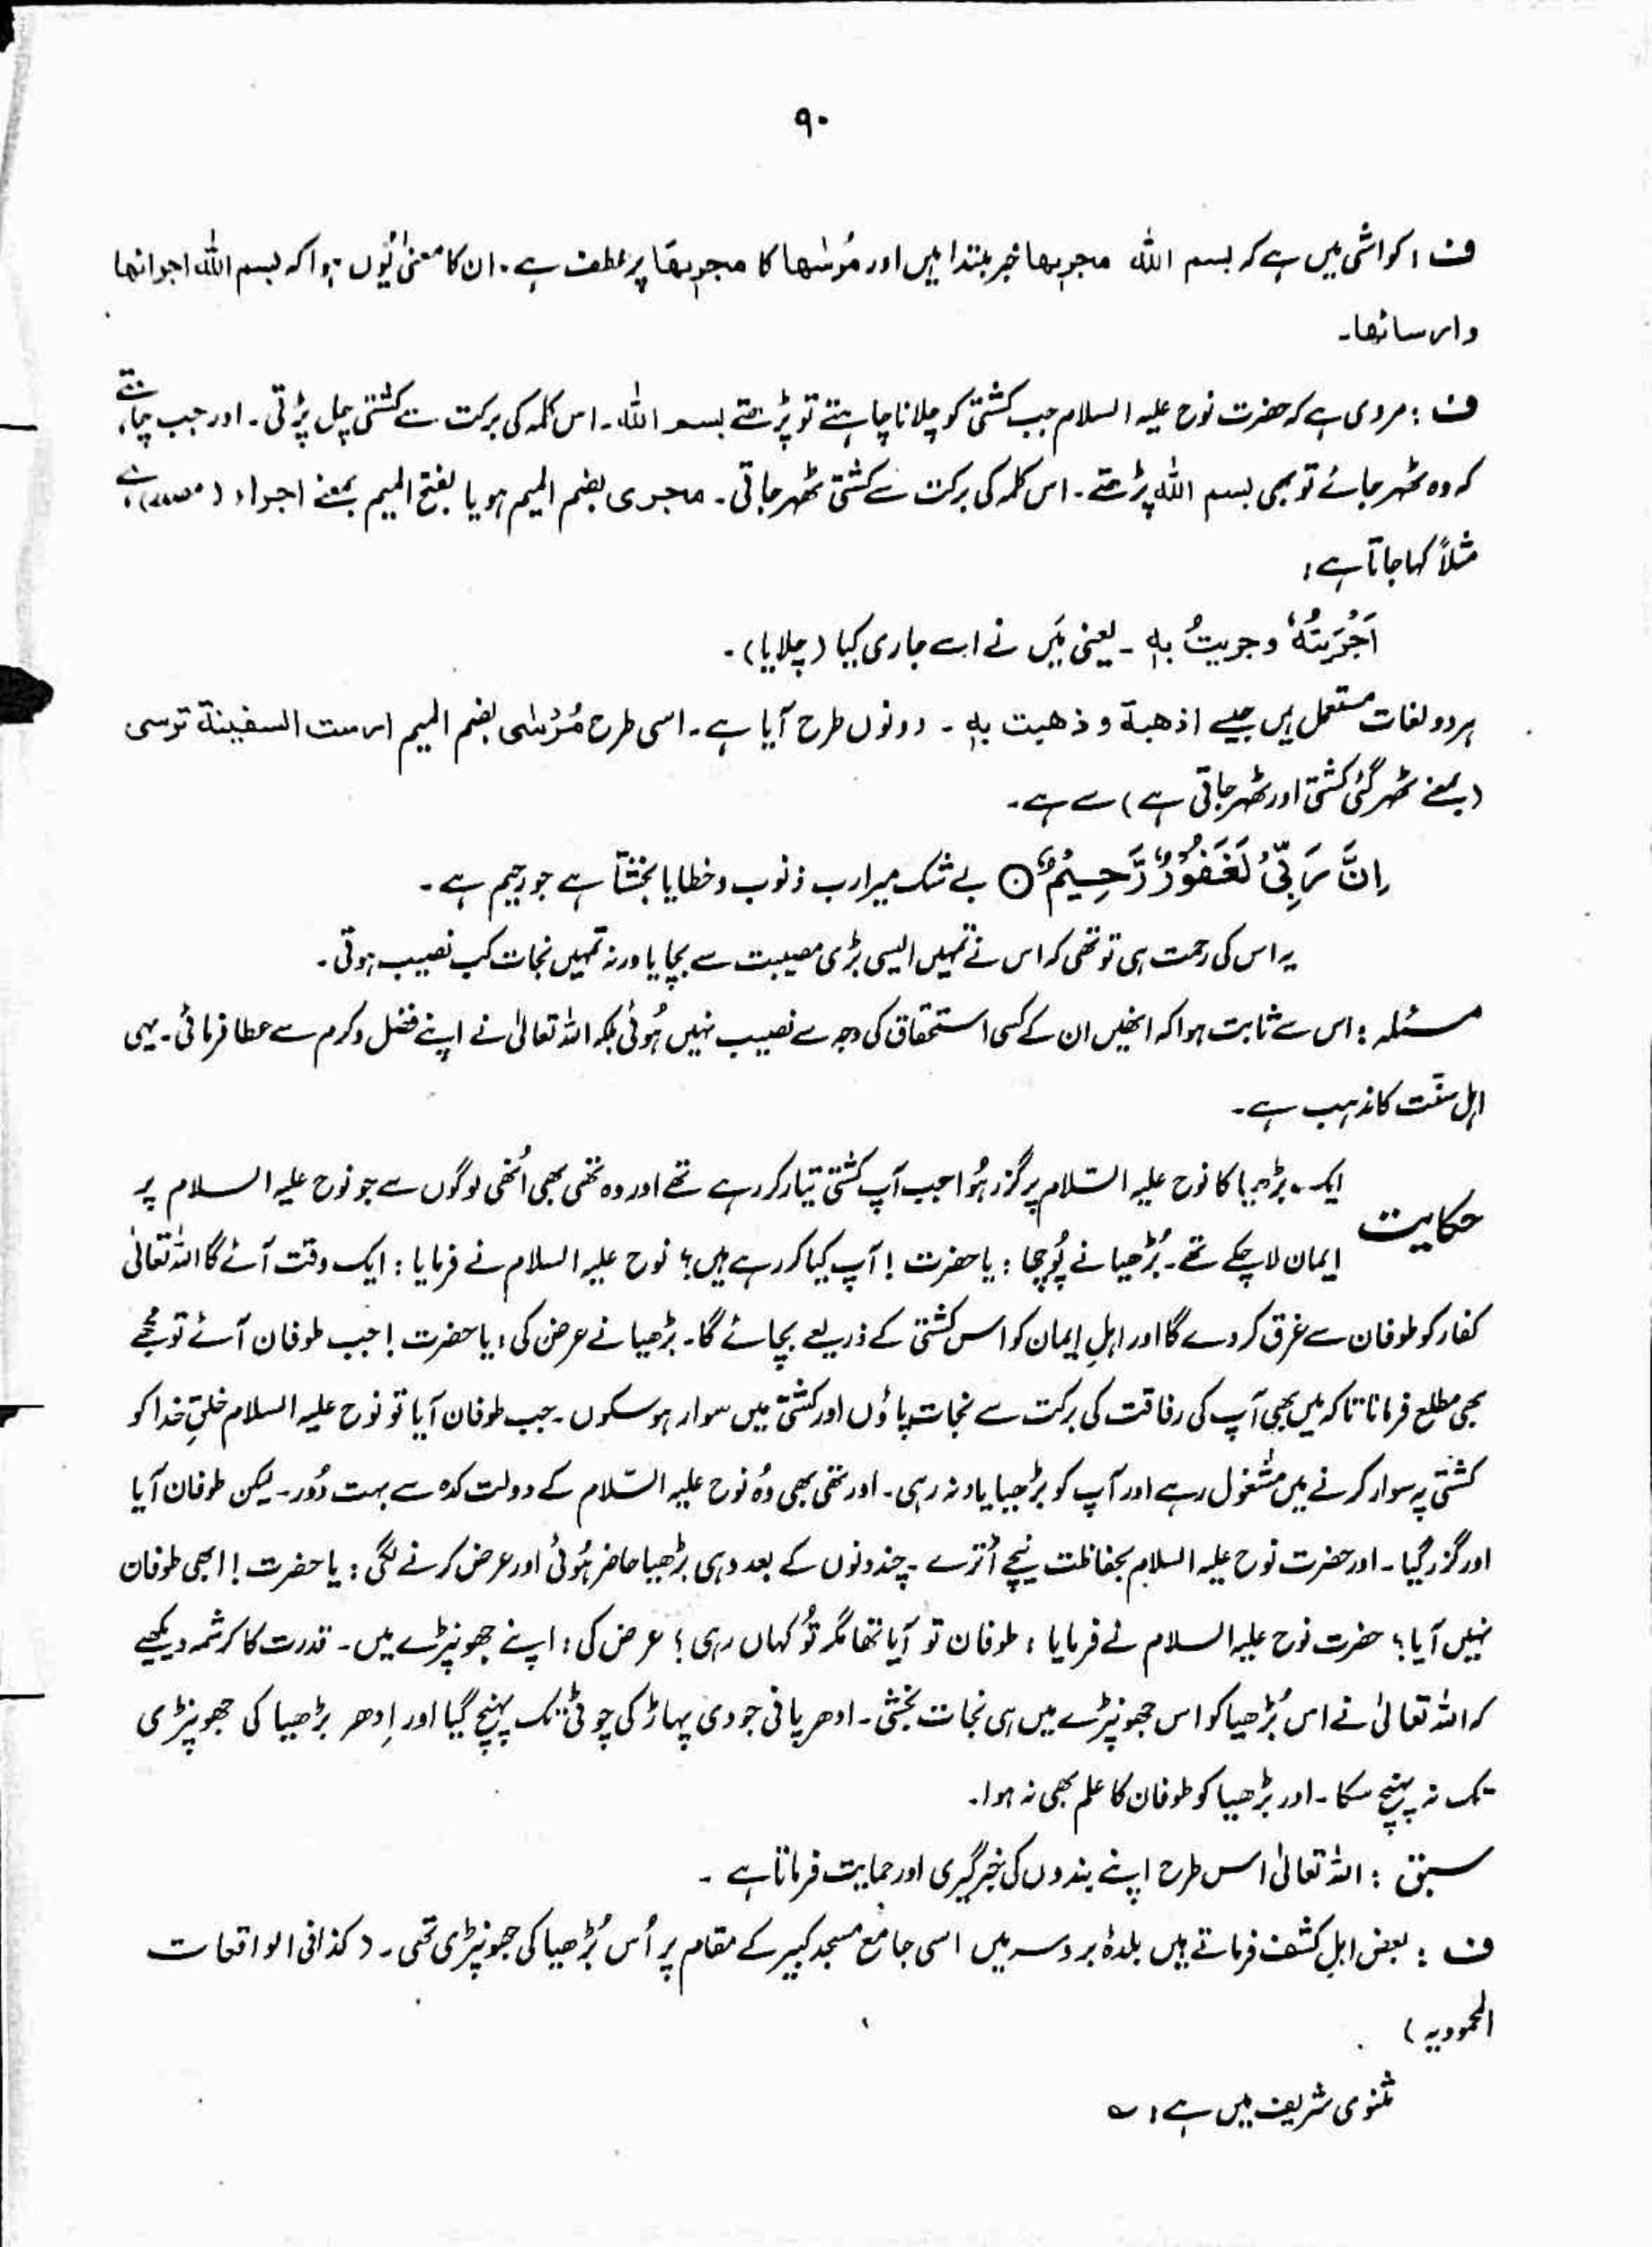 ۹۰
ف : کواشی میں ہے کہ بسم اللہ مجرىھا خبر مبتدا ہیں اور مُرسٰھا کا مجرىھَا پر عطف ہے۔ ان کا معنیٰ یُوں ہوا کہ بسم اللہ اجرائھا
وارسائھا۔
ف : مروی ہے کہ حضرت نوح علیہ السلام جب کشتی کو چلانا چاہتے تو پڑھتے بسم اللہ۔ اس کلمہ کی برکت سے کشتی چل پڑتی۔ اور جب چاہتے
کہ وہ ٹھہر جائے تو بھی بسم اللہ پڑھتے۔ اس کلمہ کی برکت سے کشتی ٹھہر جاتی۔ مجری بضم المیم ہو یا بفتح المیم بمعنے اجراء (مصدر) ہے
مثلاً کہا جاتا ہے :
اَجْرَیتُہٗ وجریتُ بہٖ ۔ یعنی میَں نے اسے جاری کیا (چلایا)۔
ہر دو لغات مستعمل ہیں جیسے اذھبۃ و ذھبت بہٖ ۔ دونوں طرح آیا ہے۔ اسی طرح مُرْسٰی بضم المیم ارست السفینۃ ترسی
(بمعنے ٹھہر گئی کشتی اور ٹھہر جاتی ہے) سے ہے۔
اِنَّ رَبِّیْ لَغَفُوْرٌ رَّحِیْمٌ ○ بے شک میرا رب ذنوب و خطایا بخشتا ہے جو رحیم ہے۔
یہ اس کی رحمت ہی تو تھی کہ اس نے تمہیں ایسی بڑی مصیبت سے بچایا ورنہ تمہیں نجات کب نصیب ہوتی۔
مسئلہ : اس سے ثابت ہوا کہ انھیں ان کے کسی استحقاق کی وجہ سے نصیب نہیں ہُوئی بلکہ اللہ تعالیٰ نے اپنے فضل و کرم سے عطا فرمائی۔ یہی
اہل سنّت کا مذہب ہے۔
حکایت ایک بڑھیا کا نوح علیہ السّلام پر گزر ہُوا جب آپ کشتی تیار کر رہے تھے اور وہ تھی بھی اُنھی لوگوں سے جو نوح علیہ السلام پر
ایمان لا چکے تھے۔ بُڑھیا نے پُوچھا : یا حضرت ! آپ کیا کر رہے ہیں؟ نوح علیہ السلام نے فرمایا : ایک وقت آئے گا اللہ تعالیٰ
کفار کو طوفان سے غرق کر دے گا اور اہلِ ایمان کو اس کشتی کے ذریعے بچائے گا۔ بڑھیا نے عرض کی : یا حضرت ! جب طوفان آئے تو مجھے
بھی مطلع فرمانا تاکہ میں بھی آپ کی رفاقت کی برکت سے نجات پاؤں اور کشتی میں سوار ہو سکوں۔ جب طوفان آیا تو نوح علیہ السلام خلقِ خدا کو
کشتی پر سوار کرنے میں مشغول رہے اور آپ کو بڑھیا یاد نہ رہی۔ اور تھی بھی وُہ نوح علیہ السّلام کے دولت کدہ سے بہت دُور۔ لیکن طوفان آیا
اور گزر گیا۔ اور حضرت نوح علیہ السلام بحفاظت نیچے اُترے۔ چند دنوں کے بعد وہی بڑھیا حاضر ہُوئی اور عرض کرنے لگی : یا حضرت ! ابھی طوفان
نہیں آیا؟ حضرت نوح علیہ السلام نے فرمایا : طوفان تو آیا تھا مگر تُو کہاں رہی؟ عرض کی : اپنے جھونپڑے میں۔ قدرت کا کرشمہ دیکھیے
کہ اللہ تعالیٰ نے اس بُڑھیا کو اس جھونپڑے میں ہی نجات بخشی۔ ادھر پانی جودی پہاڑ کی چوٹی تک پہنچ گیا اور اِدھر بڑھیا کی جھونپڑی
تک نہ پہنچ سکا۔ اور بڑھیا کو طوفان کا علم بھی نہ ہوا۔
سبق : اللہ تعالیٰ اس طرح اپنے بندوں کی خبرگیری اور حمایت فرماتا ہے ۔
ف : بعض اہلِ کشف فرماتے ہیں بلدۂ بروسہ میں اسی جامع مسجد کبیر کے مقام پر اُس بُڑھیا کی جھونپڑی تھی۔ (کذا فی الواقعات
المحمودیہ)
مثنوی شریف میں ہے : ؎